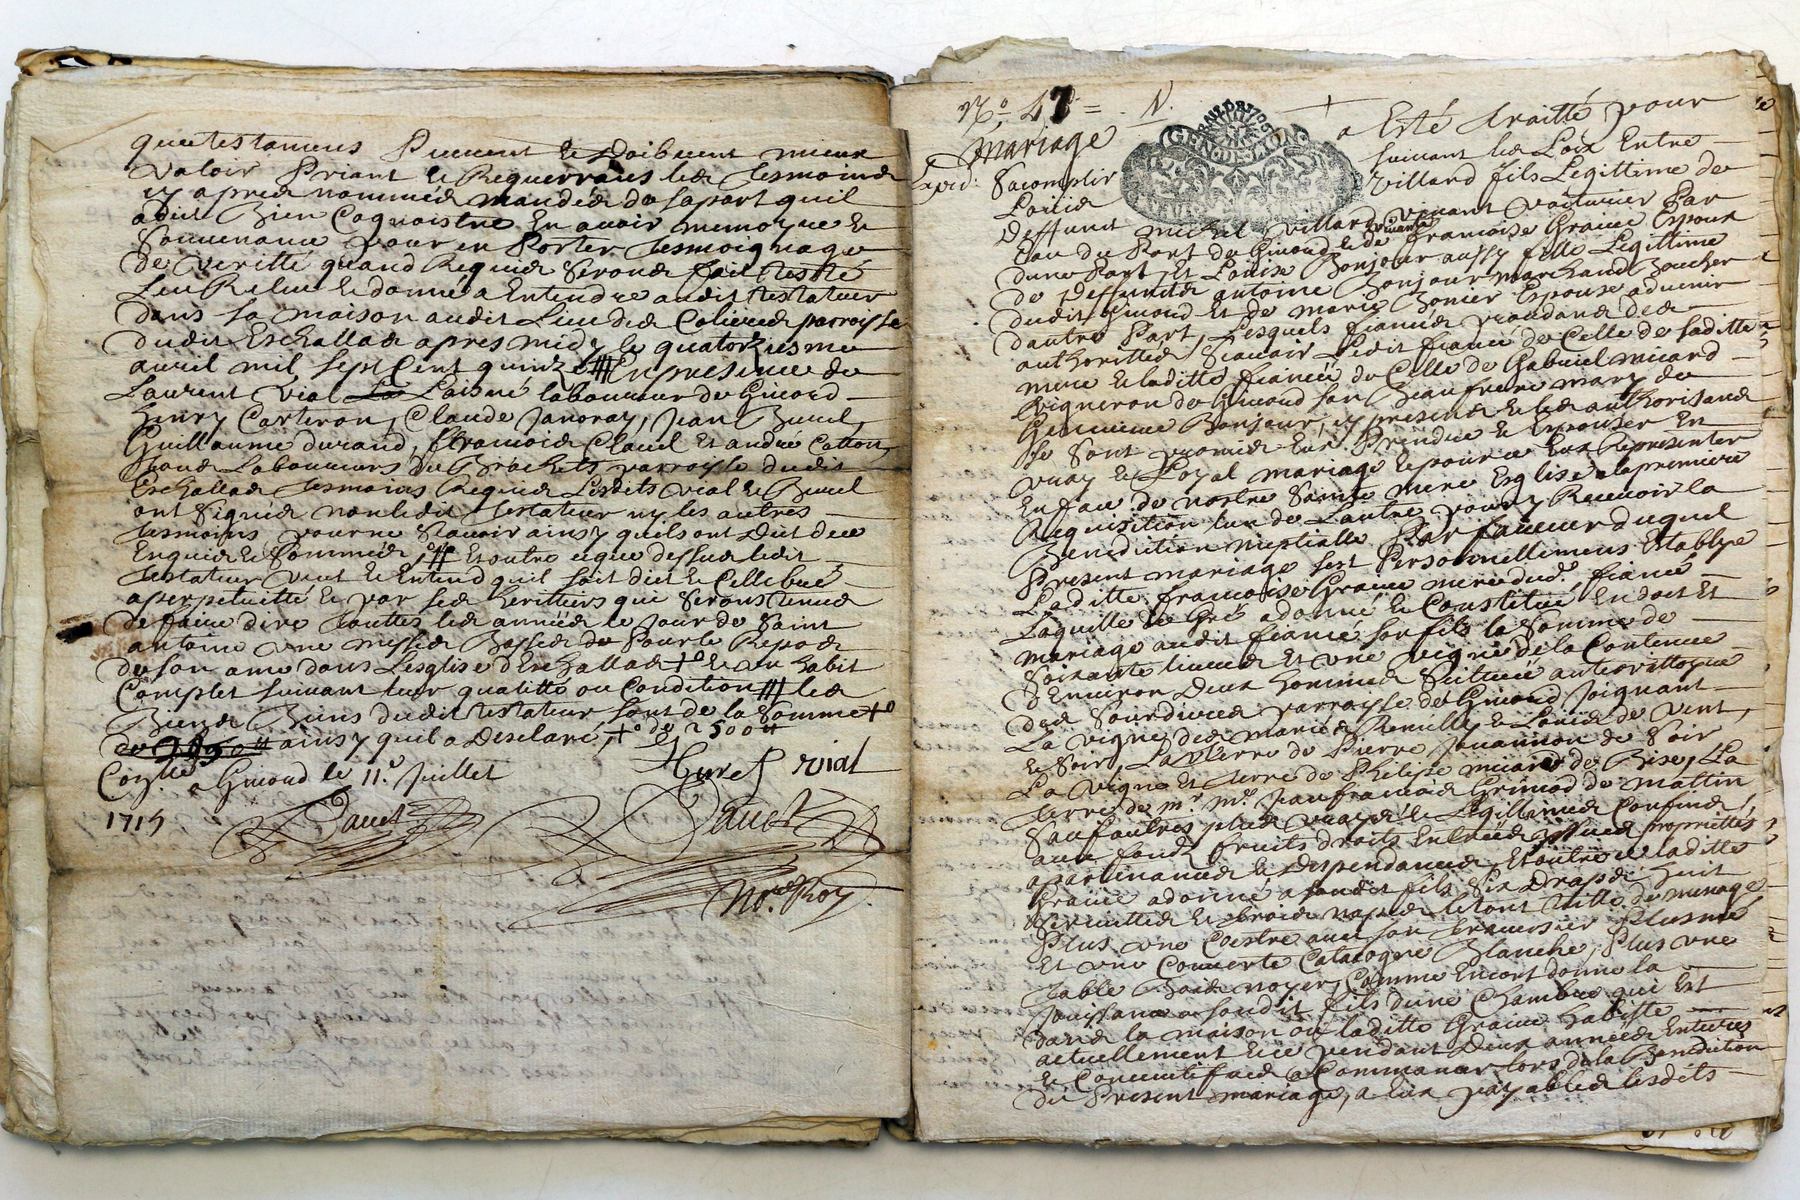 que testamens Peuvent et Doibvent mieux
Valoir Priant et Requerrans les tesmoins
cy apres nommés mandés de sa part quil
a dit Bien Cognoistre En avoir memoyre et
Souvenance pour en Porter tesmoignage
de veritté quand Requis Seronts fait testé
Leu Releu et donné a Entendre audit testateur
dans sa maison audit Lieu des Colieres parroisse
dudit Eschallas apres midy le quatorziesme
avril mil sept Cent quinze En presence de
Laurent Vial Laisné laboureur de Givord
henry Carteron, Claude Janoray, Jean Buret
Guillaume durand, francois Clavel Et andre Cotton
tous Laboureurs de parroisse dudit
Eschallas tesmoins Requis Lesdits vial et Buret
ont Signés non ledit testateur ny les autres
tesmoins pour ne Scavoir ainsy quils ont Dit de ce
Enquis et Sommés, Et outre ce que dessus ledit
testateur veut et Entend quil soit dict et Cellebré
a perpetuitté et par ses heritiers qui Seronts tenus
de faire dire touttes les années le Jour de Saint
antoine une messe Basse de pour le Repos
de son ame dans Lesglise dEschallas et un habit
Complet suivant leur qualitté ou Condition les
Biens dudit testateur sont de la Somme
ainsy quil a Desclaré, de 2500 ₶
Coll. a Givord le 11.e Juillet
Buret vial
1715
Not. Roy.
N.o 47 = N.
mariage
GEN. DE LION
a Esté traitté pour
Expéd.
Sacomplir
suivant les Loix Entre
Louis
villard fils Legittime de
deffunct michel villard vivant voiturier Par
Eau du Port de Givord et de francoise Graive Epoux
dune Part, Et Louise Bonjour aussy fille Legittime
de deffuncts antoine Bonjour marchand Boucher
dudit Givord Et de marie Bonier Espouse advenir
dautre Part, Lesquels fiancés procedans des
authorittés Scavoir Ledit fiancé de Celle de saditte
mere et laditte fiancée de Celle de Gabriel micard
vigneron de Givord son Beaufrere mary de
Bonjour, cy presens et les authorisans
Se Sont promis Eux Prendre et Espouser En
vray et Loyal mariage et pour ce Eux Representer
En face de nostre Sainte mere Esglise a la premiere
Requisition lun de Lautre pour y Recevoir la
Benediction nuptialle Par faveur duquel
Present mariage sest Personnellement Establye
Laditte francoise Graive mere dud.t fiancé
Laquelle de Gré a donné et Constitué En dot Et
mariage audit fiancé son fils la Somme de
Soixante livres Et une vigne de la Contenue
dEnviron Deux hommées Scituée au territtoyre
des parroisse de Givord Joignant
La vigne des mariés Remilly et Louis de vent
et Soir, La terre de Pierre Jouannon de Soir
La vigne Et terre de Philipe micard de Bise, La
terre de m.r m.e Jean francois Grimod de mattin
Sauf autres plus vrays et Legittimes Confins
aux fonds fruits droits Entrées Issues propriettés
apartenances et Despendances, Et outre ce laditte
Graive a donné a sondit fils Six Draps huit
Serviettes et trois napes le tout toille de menage
Plus une Coestre avec son traversier
Et une Couverte Catalogne Blanche, Plus une
table Bois noyer, Comme Encort donne la
Jouissance a sondit fils dune Chambre qui Est
dans la maison ou laditte Graive habitte
actuellement et ce pendant Deux années Entieres
et Consecutives a Commancer lors de la Benediction
du Present mariage, a Eux payables lesdits